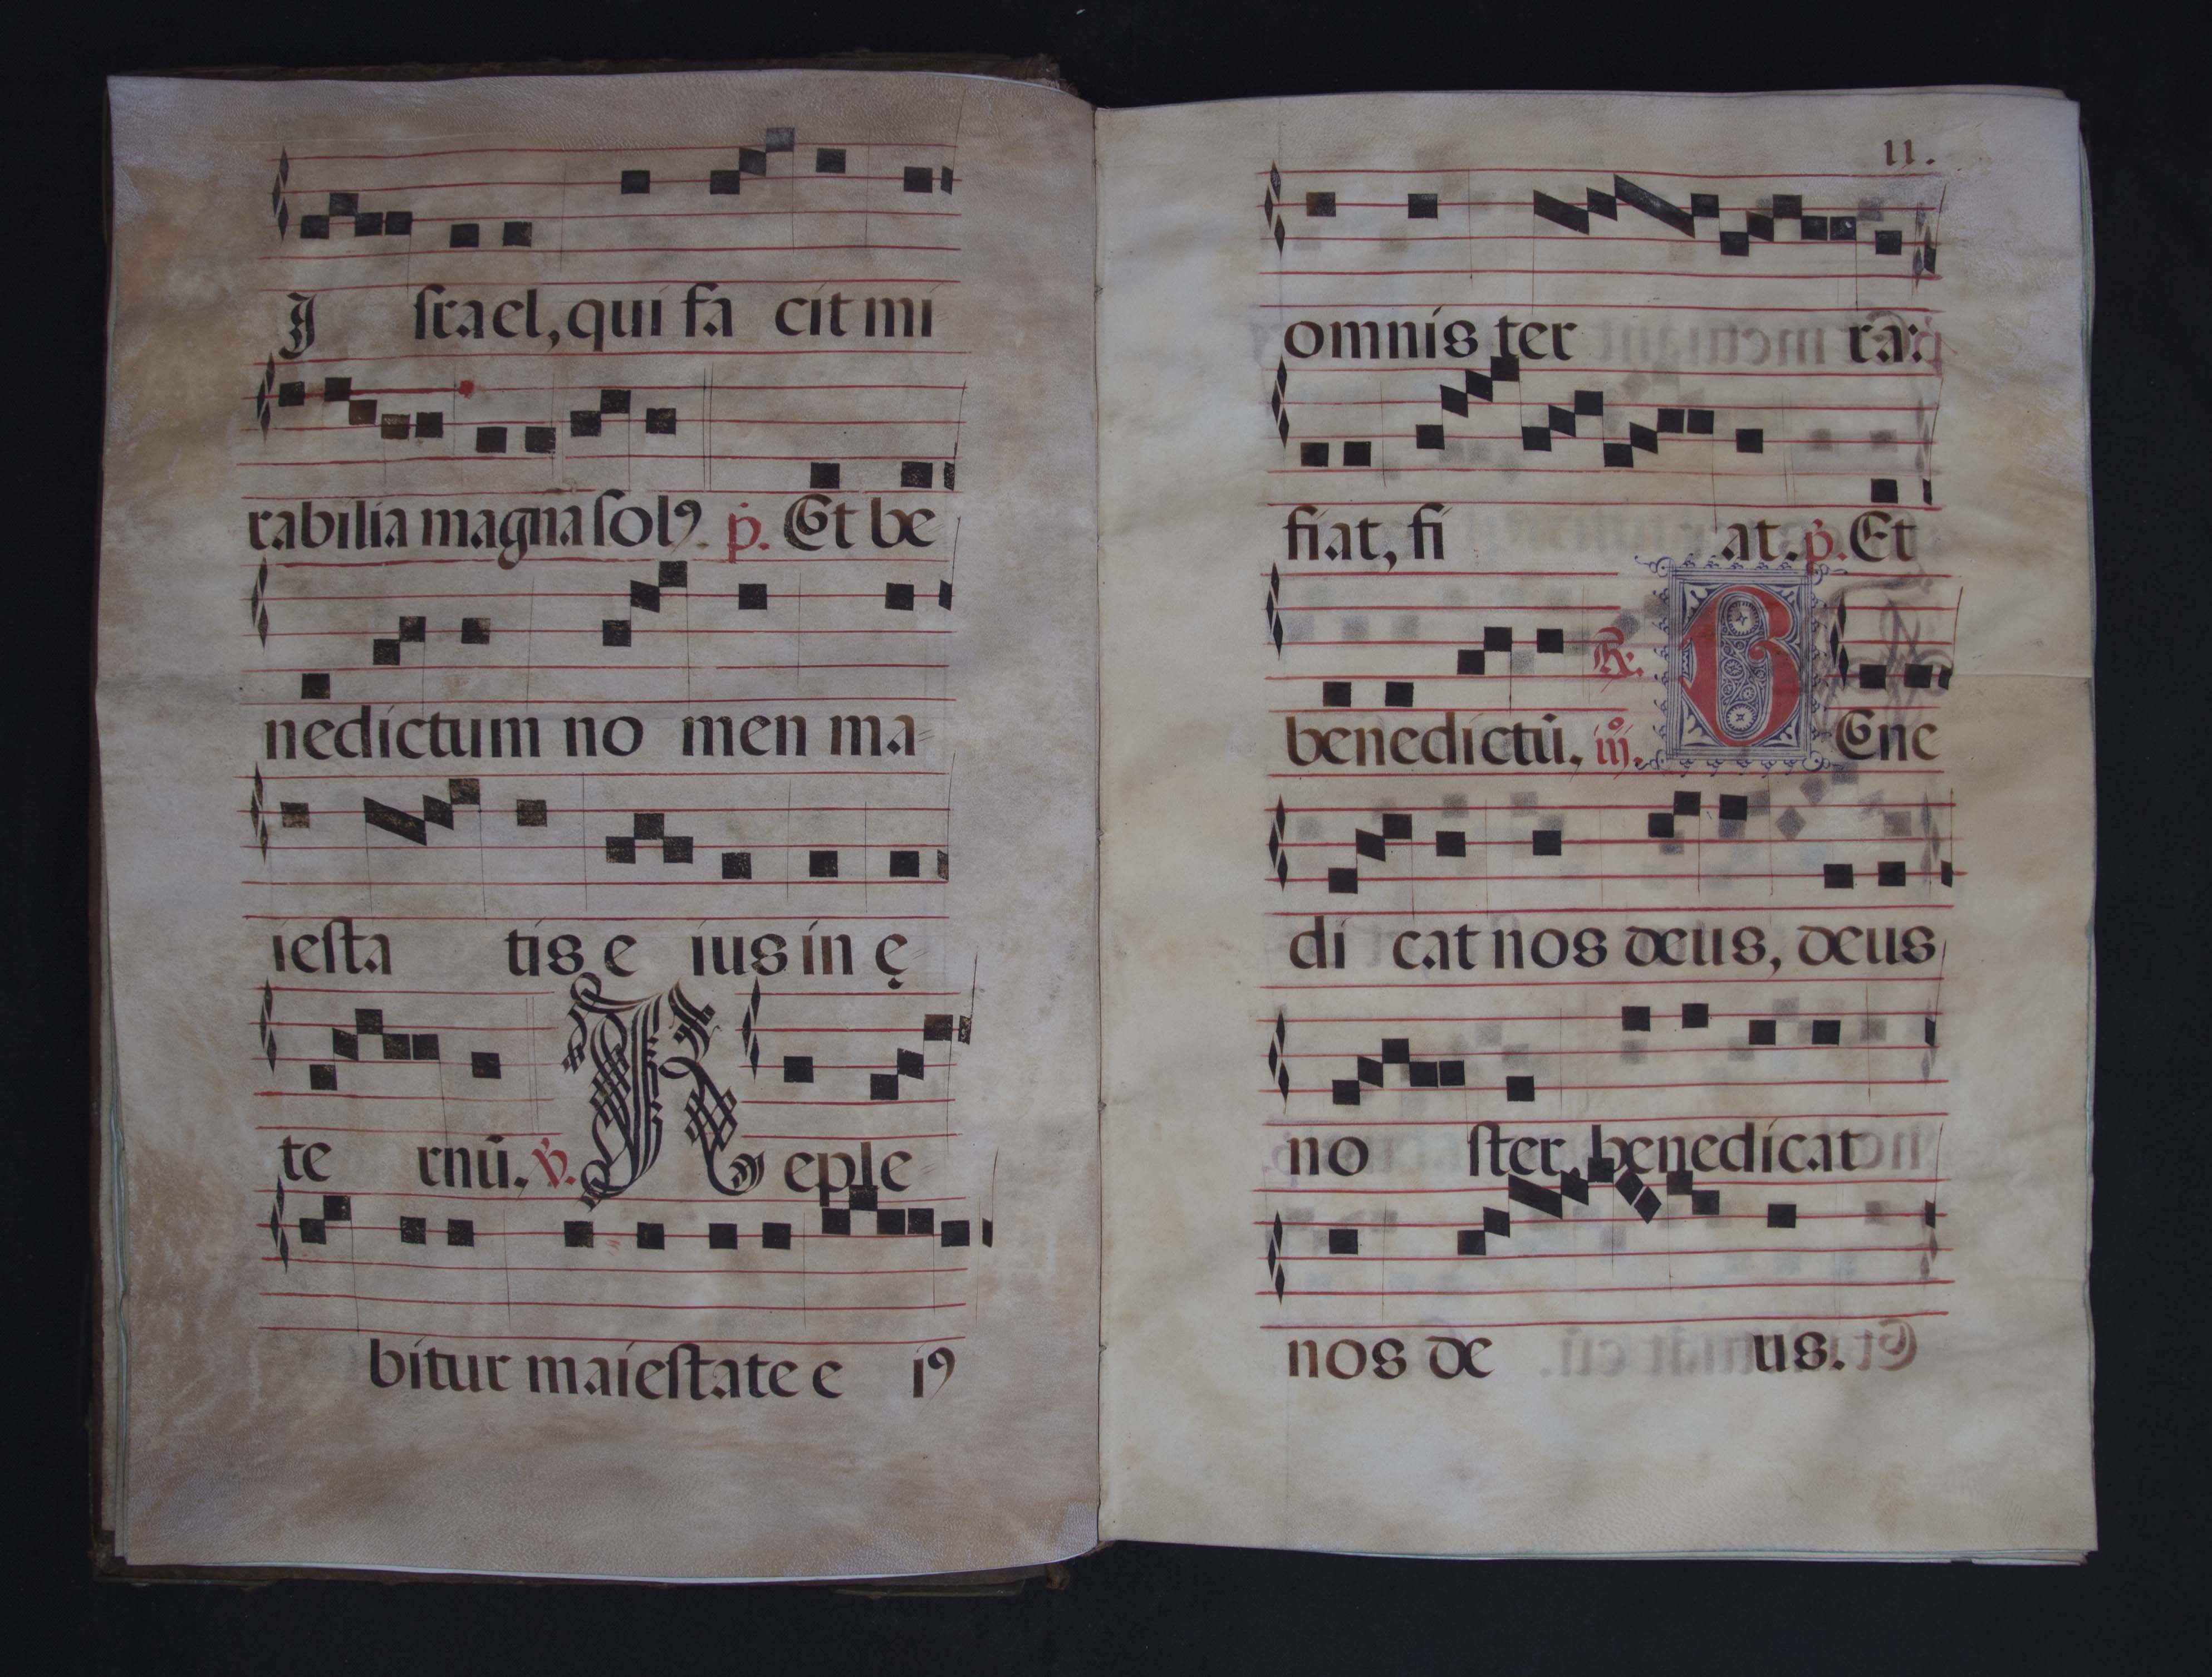 I srael, qui fa cit mi
rabilia magna solꝰ. p. Et be
nedictum no men ma=
iesta tis e ius in ę=
te rnū. ℣. R eple=
bitur maiestate e iꝰ
11.
omnis ter ra:
fiat, fi at. p. Et
benedictū. iij. ℟. B Ene
di cat nos deus, deus
no ster, benedicat
nos de us.